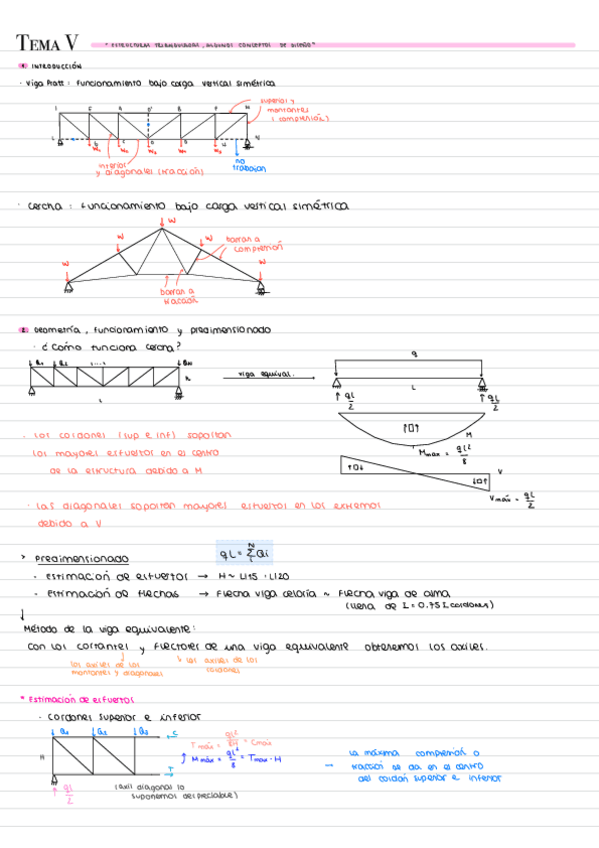 TEMA V
"ESTRUCTURAS TRIANGULADAS, ALGUNOS CONCEPTOS DE DISEÑO"
1. INTRODUCCIÓN
· Viga Pratt : funcionamiento bajo carga vertical simétrica
superior y
montantes
(compresión)
inferior
y diagonales (tracción)
no
trabajan
· Cercha : Funcionamiento bajo carga vertical simétrica
W
W
W
W
W
barras a
compresión
barras a
tracción
2. Geometría, funcionamiento y predimensionado
· ¿Cómo funciona cercha?
Q1 Q2 ..... QN
H
L
viga equival.
q
L
qL/2
qL/2
M
Mmáx = qL²/8
V
Vmáx = qL/2
· Los cordones (sup e inf) soportan
los mayores esfuerzos en el centro
de la estructura debido a M
· Las diagonales soportan mayores esfuerzos en los extremos
debido a V
> Predimensionado
qL = Σ Qi
- estimación de esfuerzos → H ~ L/15 ÷ L/20
- estimación de flechas → Flecha viga celosía ~ Flecha viga de alma
(llena de I = 0.75 I cordones)
↓
Método de la viga equivalente:
Con los cortantes y flectores de una viga equivalente obtenemos los axiles.
los axiles de los
montantes y diagonales
↳ los axiles de los
cordones
* Estimación de esfuerzos
· Cordones superior e inferior
Q1 Q2 Q3
C
H
T
qL/2
(axil diagonal lo
suponemos despreciable)
Tmáx = qL²/8H = Cmáx
Mmáx = qL²/8 = Tmax · H
→ La máxima compresión o
tracción se da en el centro
del cordón superior e inferior